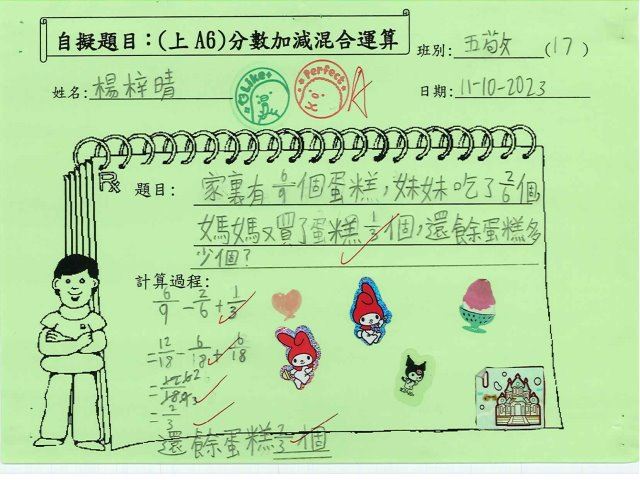 自擬題目：(上 A6)分數加減混合運算
班別: 五敬 (17)
姓名: 楊梓晴
Like
Perfect
A
日期: 11-10-2023
題目: 家裏有 6/9 個蛋糕，妹妹吃了 2/6 個，
媽媽又買了蛋糕 1/3 個，還餘蛋糕多
少個？
計算過程:
6/9 - 2/6 + 1/3
= 12/18 - 6/18 + 6/18
= 12/18
= 2/3
還餘蛋糕 2/3 個